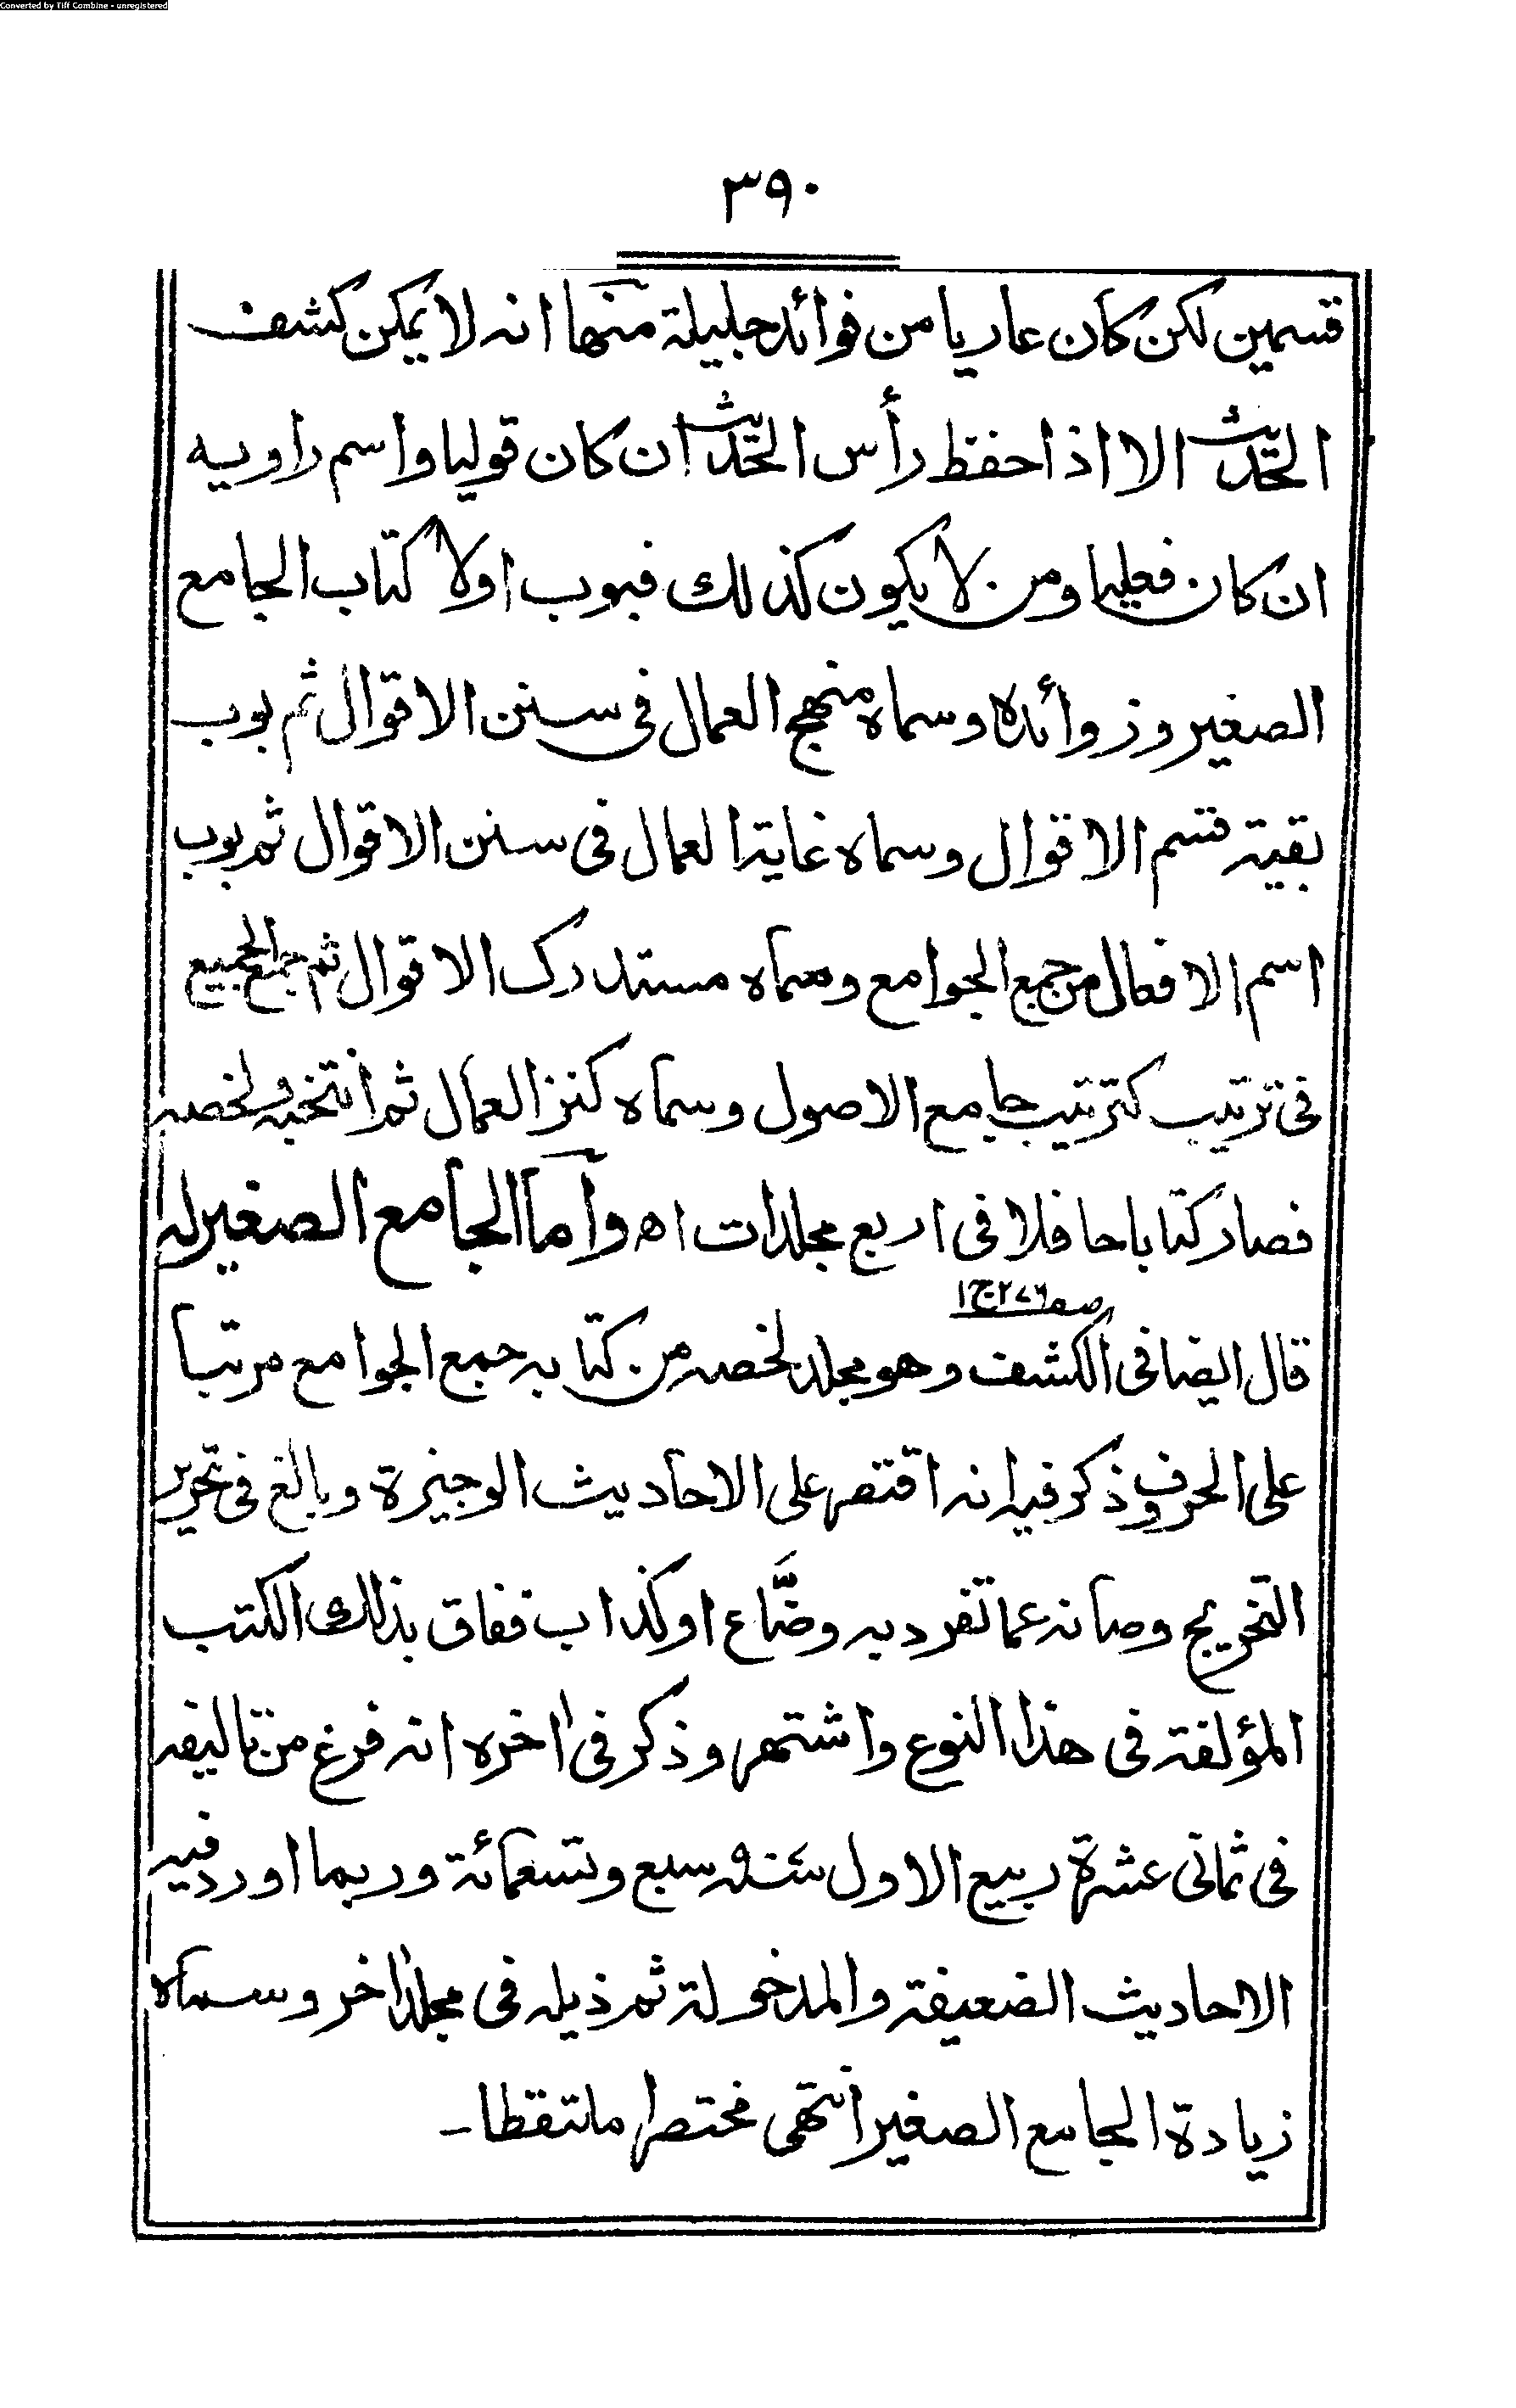 Converted by Tiff Combine - unregistered
٣٩٠
قسمين لكن كان عاريا من فوائد جليلة منها انه لا يمكن كشف
الحديث الا اذا حفظ رأس الحديث ان كان قوليا واسم راويه
ان كان فعليا ومن لا يكون كذلك فبوب اولا كتاب الجامع
الصغير وزوائده وسماه منهج العمال فى سنن الاقوال ثم بوب
بقية قسم الاقوال وسماه غاية العمال فى سنن الاقوال ثم بوب
اسم الافعال من جمع الجوامع وسماه مستدرك الاقوال ثم جمع الجميع
فى ترتيب كترتيب جامع الاصول وسماه كنز العمال ثم انتخبه ولخصه
فصار كتابا حافلا فى اربع مجلدات اه وأما الجامع الصغير له
صه ٢٧٦ ج ١
قال ايضا فى الكشف وهو مجلد لخصه من كتابه جمع الجوامع مرتبا
على الحروف وذكر فيه انه اقتصر على الاحاديث الوجيزة وبالغ فى تحرير
التخريج وصانه عما تفرد به وضَّاع او كذاب ففاق بذلك الكتب
المؤلفة فى هذا النوع واشتهر وذكر فى اخره انه فرغ من تاليفه
فى ثمانى عشرة ربيع الاول سنه سبع وتسعمائة وربما اورد فيه
الاحاديث الضعيفة والمدخولة ثم ذيله فى مجلد اخر وسماه
زيادة الجامع الصغير انتهى مختصرا ملتقطا-